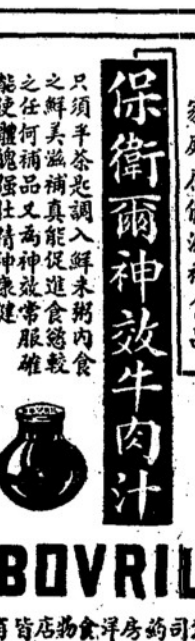 保衛爾神效牛肉汁
只須半茶匙調入鮮米粥內食
之鮮美滋補真能促進食慾較
之任何補品又為神效常服確
能使體魄强壯精神康健
BOVRIL